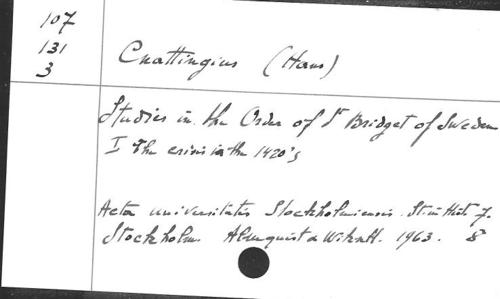 107
131
3
Cnattingius (Hans)
Studies in the Order of St Bridget of Sweden
I The crisis in the 1420's
Acta universitatis Stockholmiensis. St. in Hist. 7.
Stockholm. Almquist & Wiksell. 1963. 8